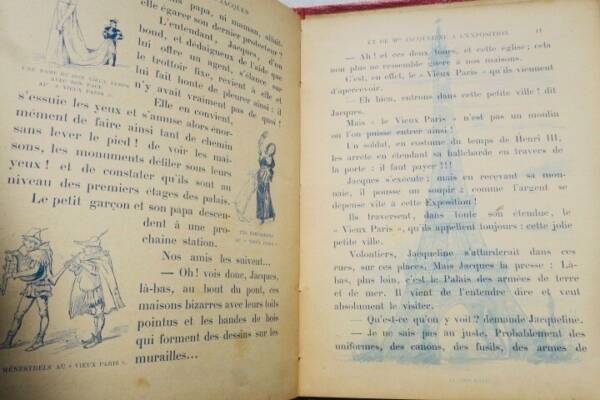 JACQUES
papa, ni maman, s'était-
elle égarer son dernier protecteur !
L'entendant, Jacques, d'un
bond, et dédaigneux de l'aide que
lui offre un agent, s'élance sur
le trottoir fixe, revient à elle et
lui fait honte de pleurer ainsi : il
n'y avait vraiment pas de quoi !
Elle en convient,
s'essuie les yeux et s'amuse alors énor-
mément de faire ainsi tant de chemin
sans lever le pied ! de voir les mai-
sons, les monuments défiler sous leurs
yeux ! et de constater qu'ils sont au
niveau des premiers étages des palais.
Le petit garçon et son papa descen-
dent à une pro-
chaine station.
Nos amis les suivent...
— Oh ! vois donc, Jacques,
là-bas, au bout du pont, ces
maisons bizarres avec leurs toits
pointus et les bandes de bois
qui forment des dessins sur les
murailles...
UNE DAME DU BON VIEUX TEMPS
AVEC SON PAGE
AU « VIEUX PARIS ».
AU « VIEUX PARIS ».
MÉNESTRELS AU « VIEUX PARIS ».
ET DE Mlle JACQUELINE A L'EXPOSITION
11
— Ah ! et ces deux tours, et cette église ; cela
non plus ne ressemble guère à nos maisons.
C'est, en effet, le « Vieux Paris » qu'ils viennent
d'apercevoir.
— Eh bien, entrons dans cette petite ville ! dit
Jacques.
Mais « le Vieux Paris » n'est pas un moulin
où l'on puisse entrer ainsi !
Un soldat, en costume du temps de Henri III,
les arrête en étendant sa hallebarde en travers de
la porte : il faut payer !!!
Jacques s'exécute ; mais en recevant sa mon-
naie, il pousse un soupir : comme l'argent se
dépense vite à cette Exposition !
Ils traversent, dans toute son étendue, le
« Vieux Paris », qu'ils appellent toujours : cette jolie
petite ville.
Volontiers, Jacqueline s'attarderait dans ces
rues, sur ces places. Mais Jacques la presse : Là-
bas, plus loin, c'est le Palais des armées de terre
et de mer. Il vient de l'entendre dire et veut
absolument le visiter.
— Qu'est-ce qu'on y voit ? demande Jacqueline.
— Je ne sais pas au juste. Probablement des
uniformes, des canons, des fusils, des armes de